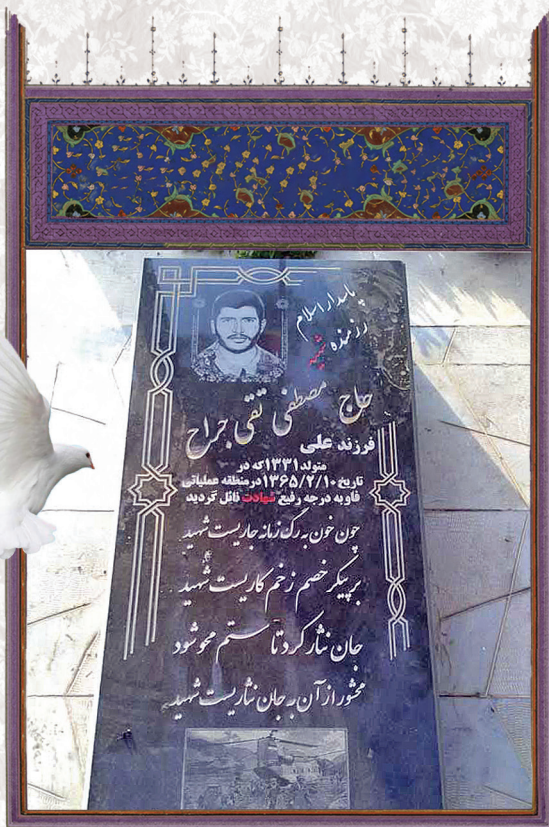 پاسدار اسلام
رزمنده شهید
حاج مصطفی تقی جراح
فرزند علی
متولد ۱۳۳۱ که در
تاریخ ۱۳۶۵/۲/۱۰ در منطقه عملیاتی
فاو به درجه رفیع شهادت نائل گردید
چون خون به رگ زمانه جاریست شهید
بر پیکر خصم زخم کاریست شهید
جان نثار کرد تا ستم محو شود
محشور از آن به جان نثاریست شهید